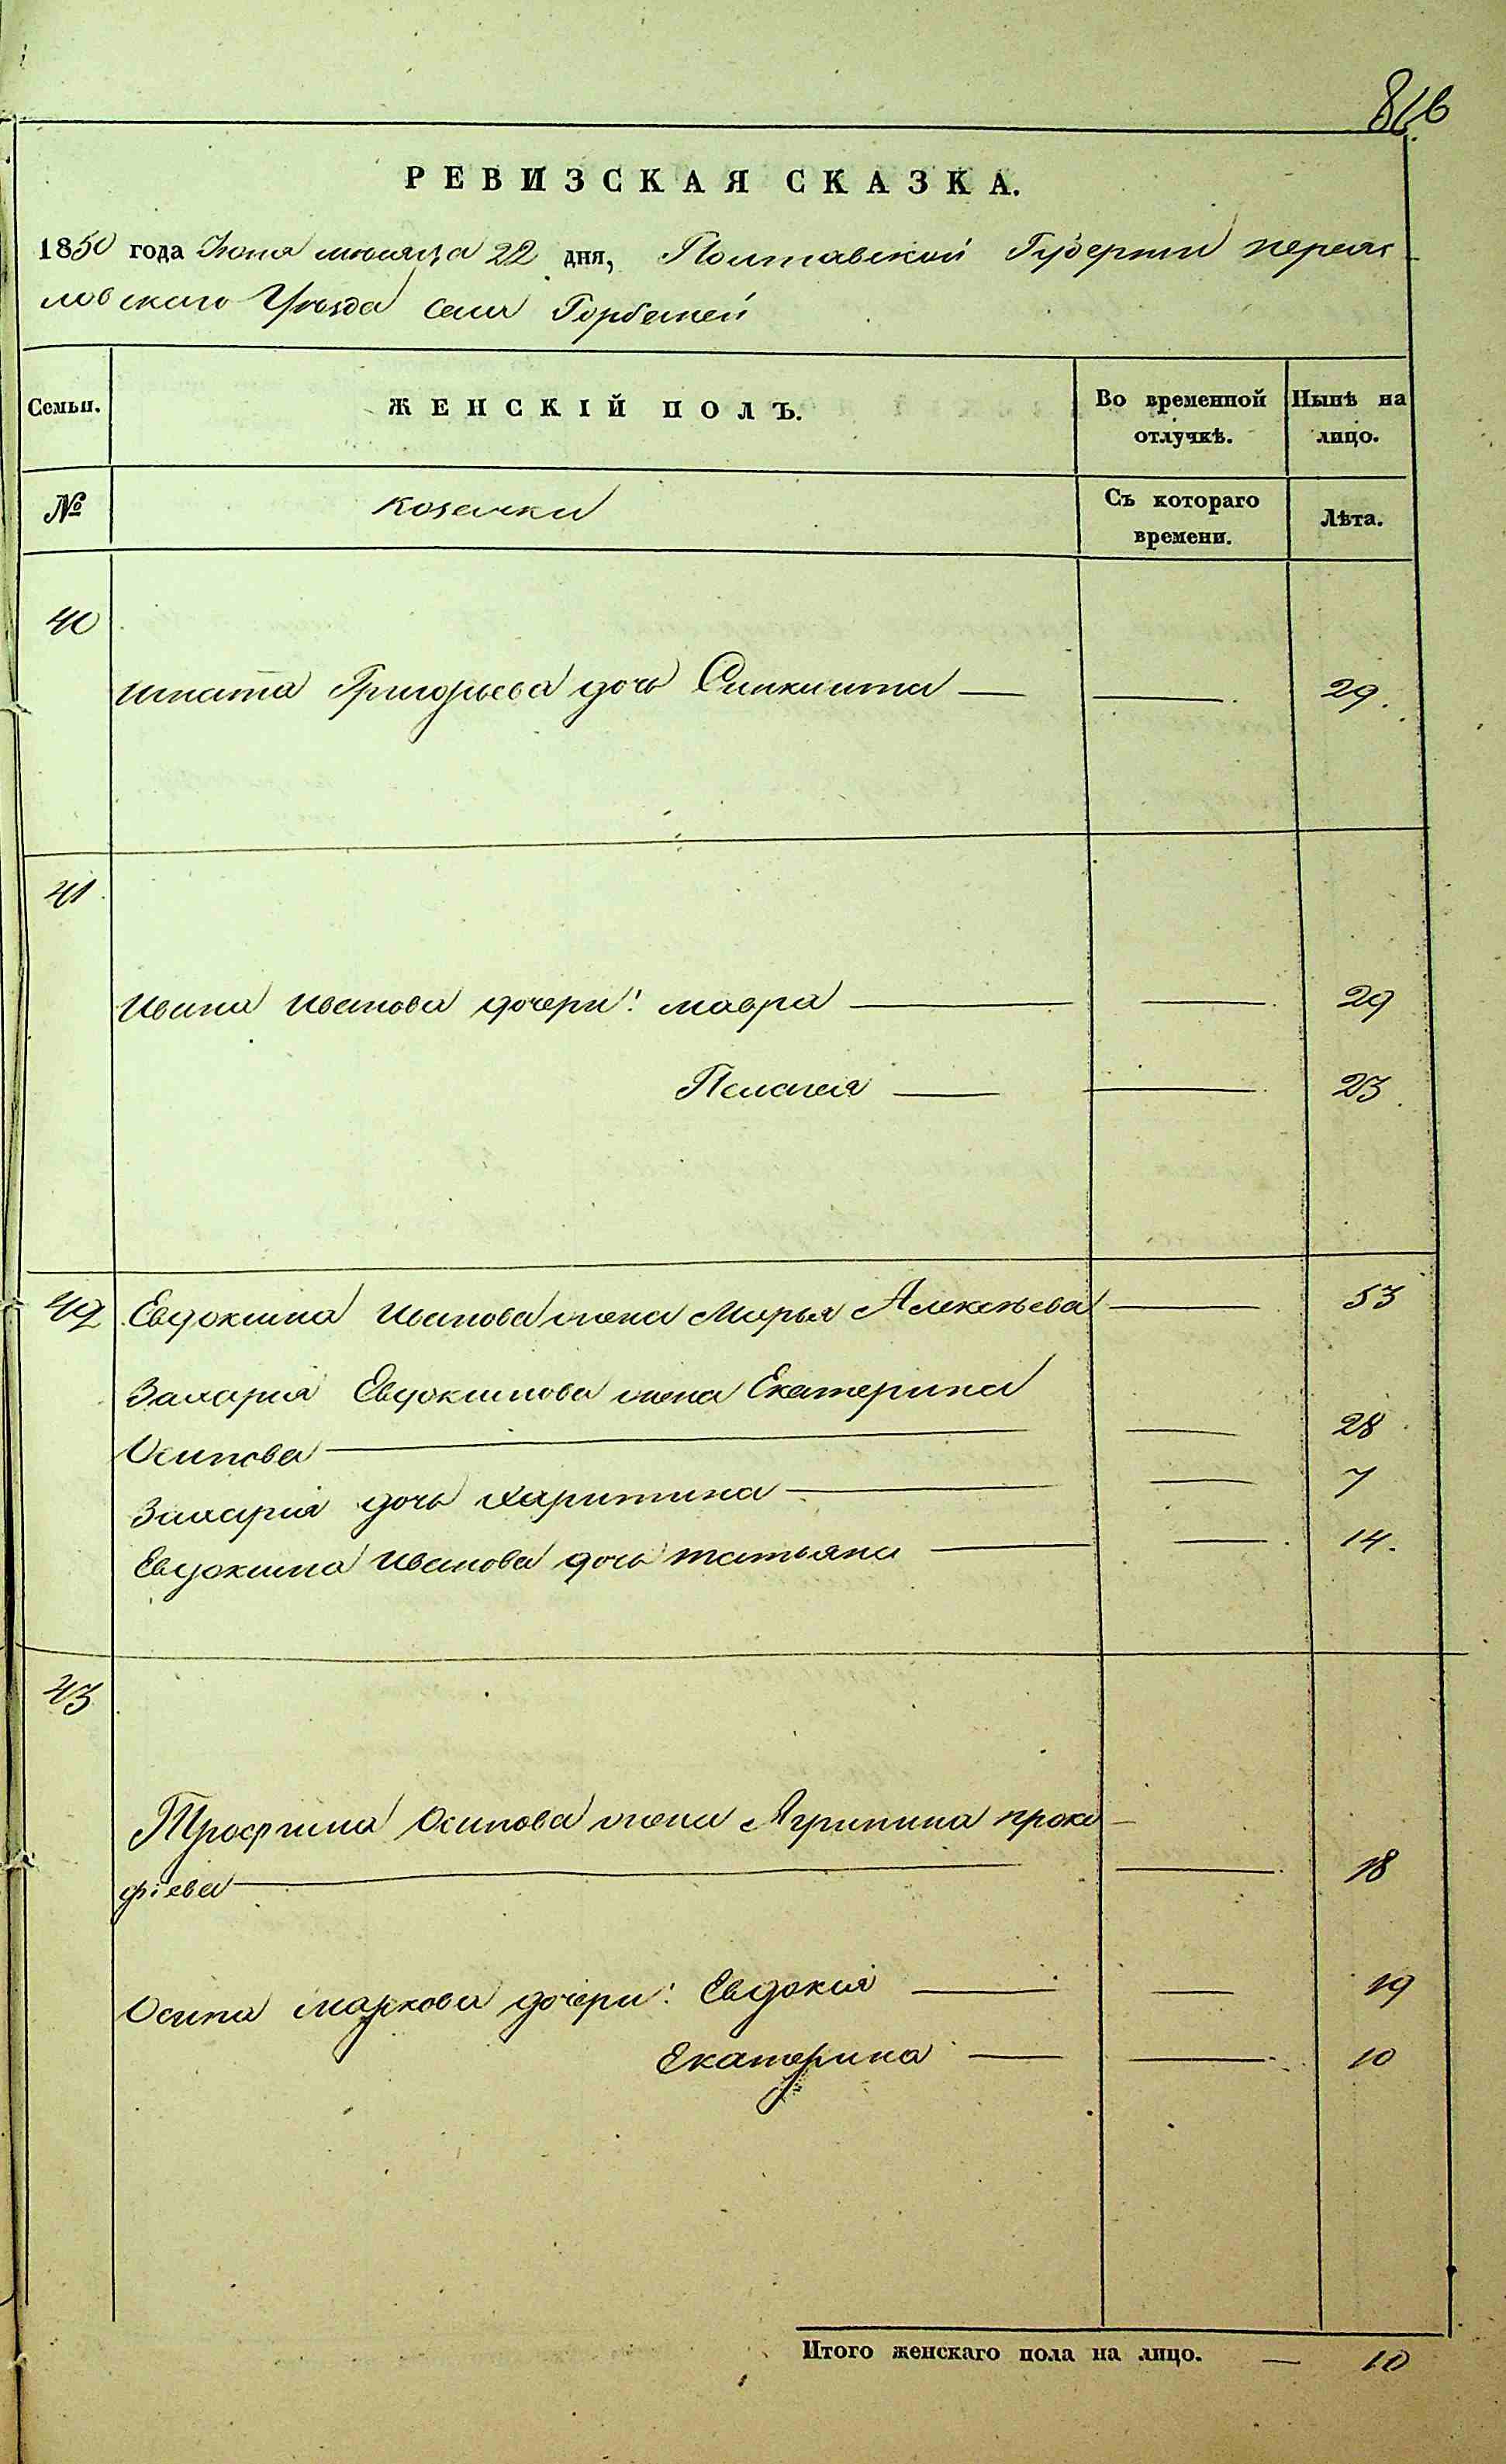 816
РЕВИЗСКАЯ СКАЗКА.
1850 года Іюня мѣсяца 22 дня, Полтавской Губерніи переяс
ловскаго Уѣзда Села Горбаней
Семьи. ЖЕНСКІЙ ПОЛЪ. Во временной отлучкѣ. Нынѣ на лицо.
№ козачки Съ котораго времени. Лѣта.
40
Игната Григорьева дочь — — 29.
41
Ивана Иванова дочери: мавра — — 29
Пелагея — — 23
42 Евдокима Иванова жена Марья Алексѣева — 53
Захарія Евдокимова жена Екатерина
Осипова — — 28
Захарія дочь харитина — — 7
Евдокима Иванова дочь татьяна — — 14.
43
Трофима Осипова жена Агрипина проко
фіева — — 18
Осипа маркова дочери: Евдокія — — 19
Екатерина — — 10
Итого женскаго пола на лицо. — 10